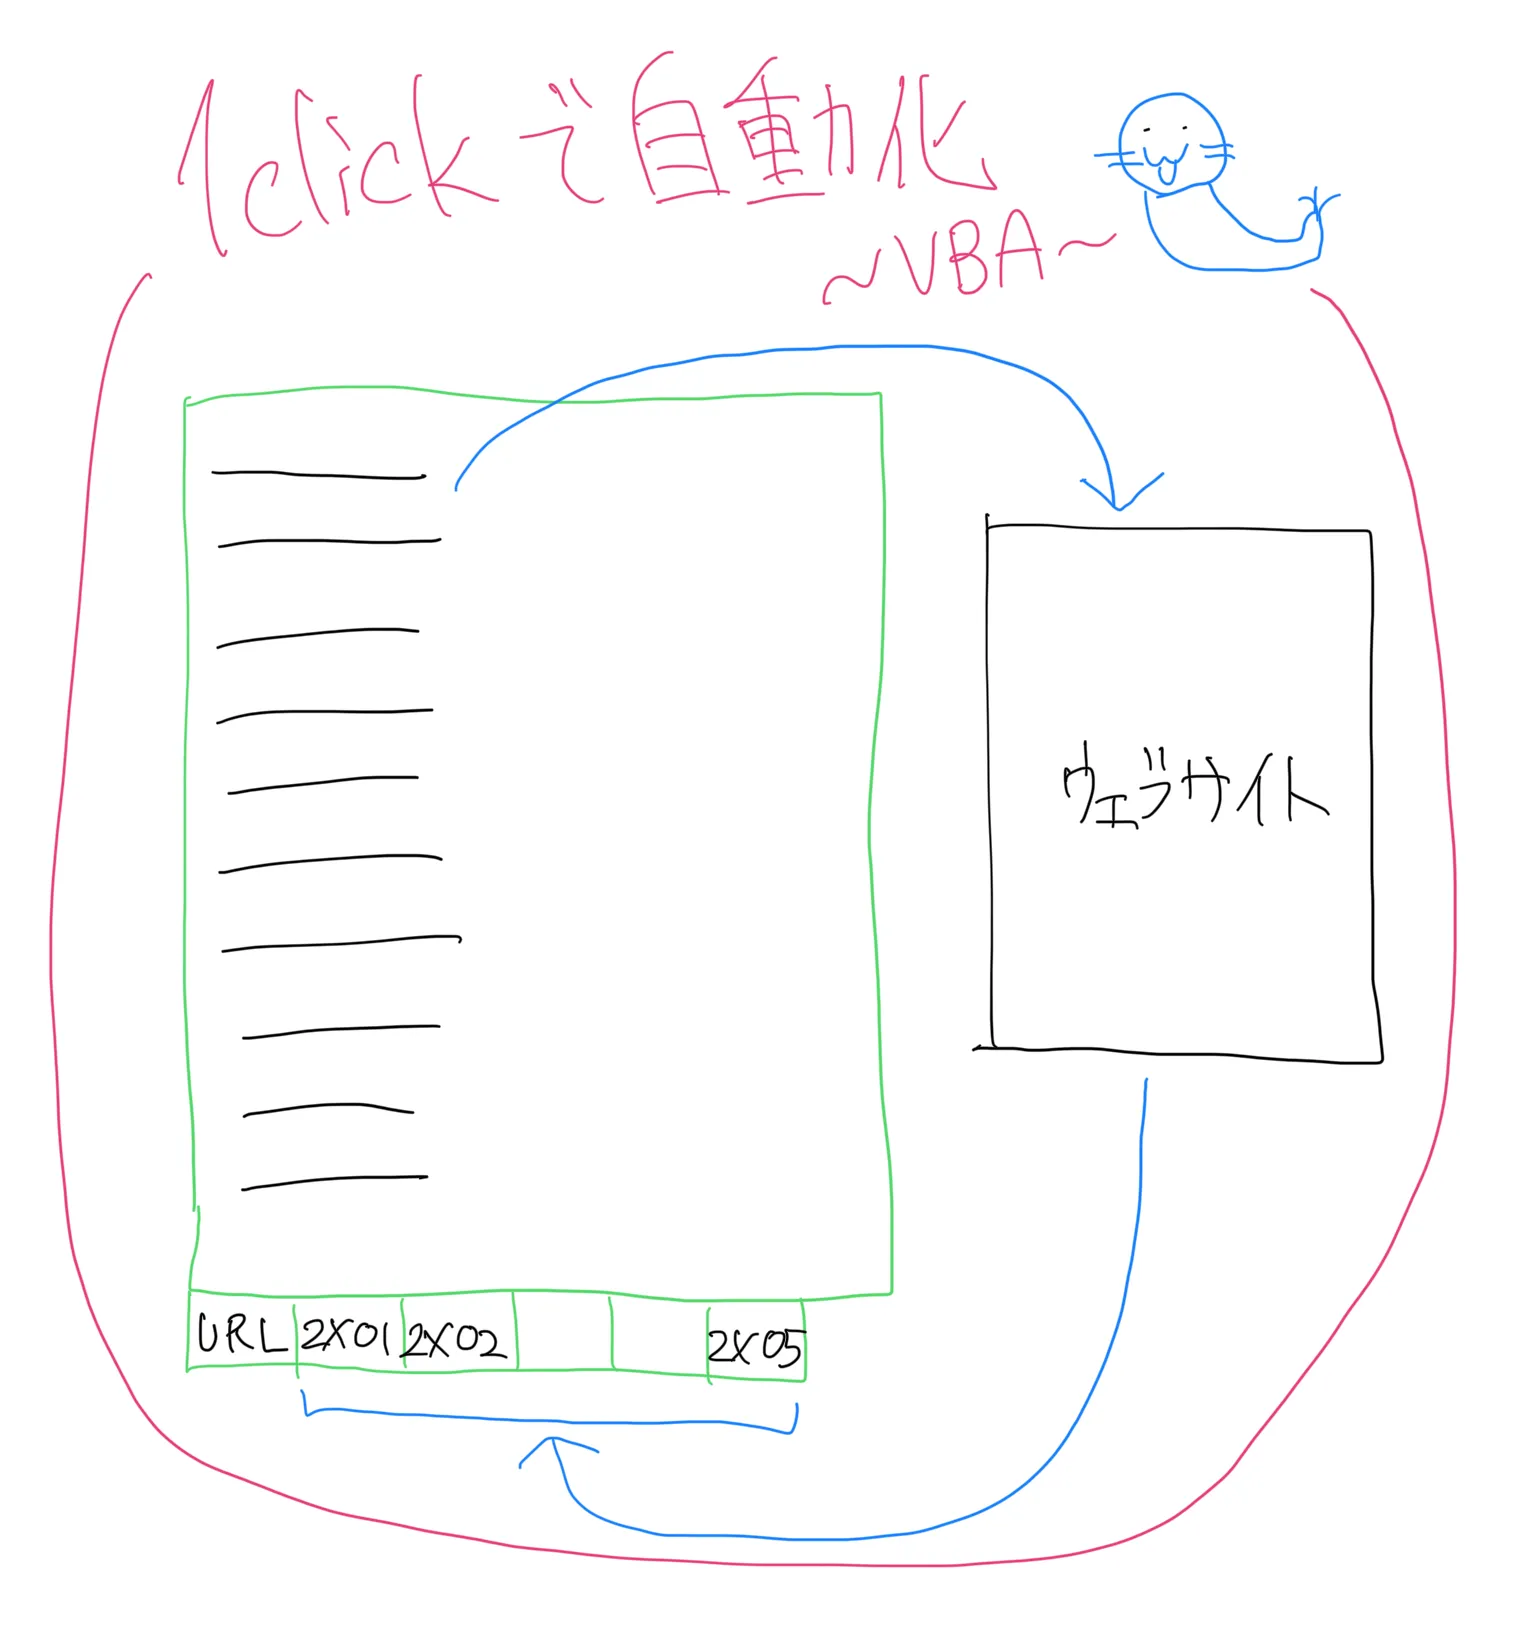 1clickで自動化
〜VBA〜
ウェブサイト
URL 2X01 2X02 2X05